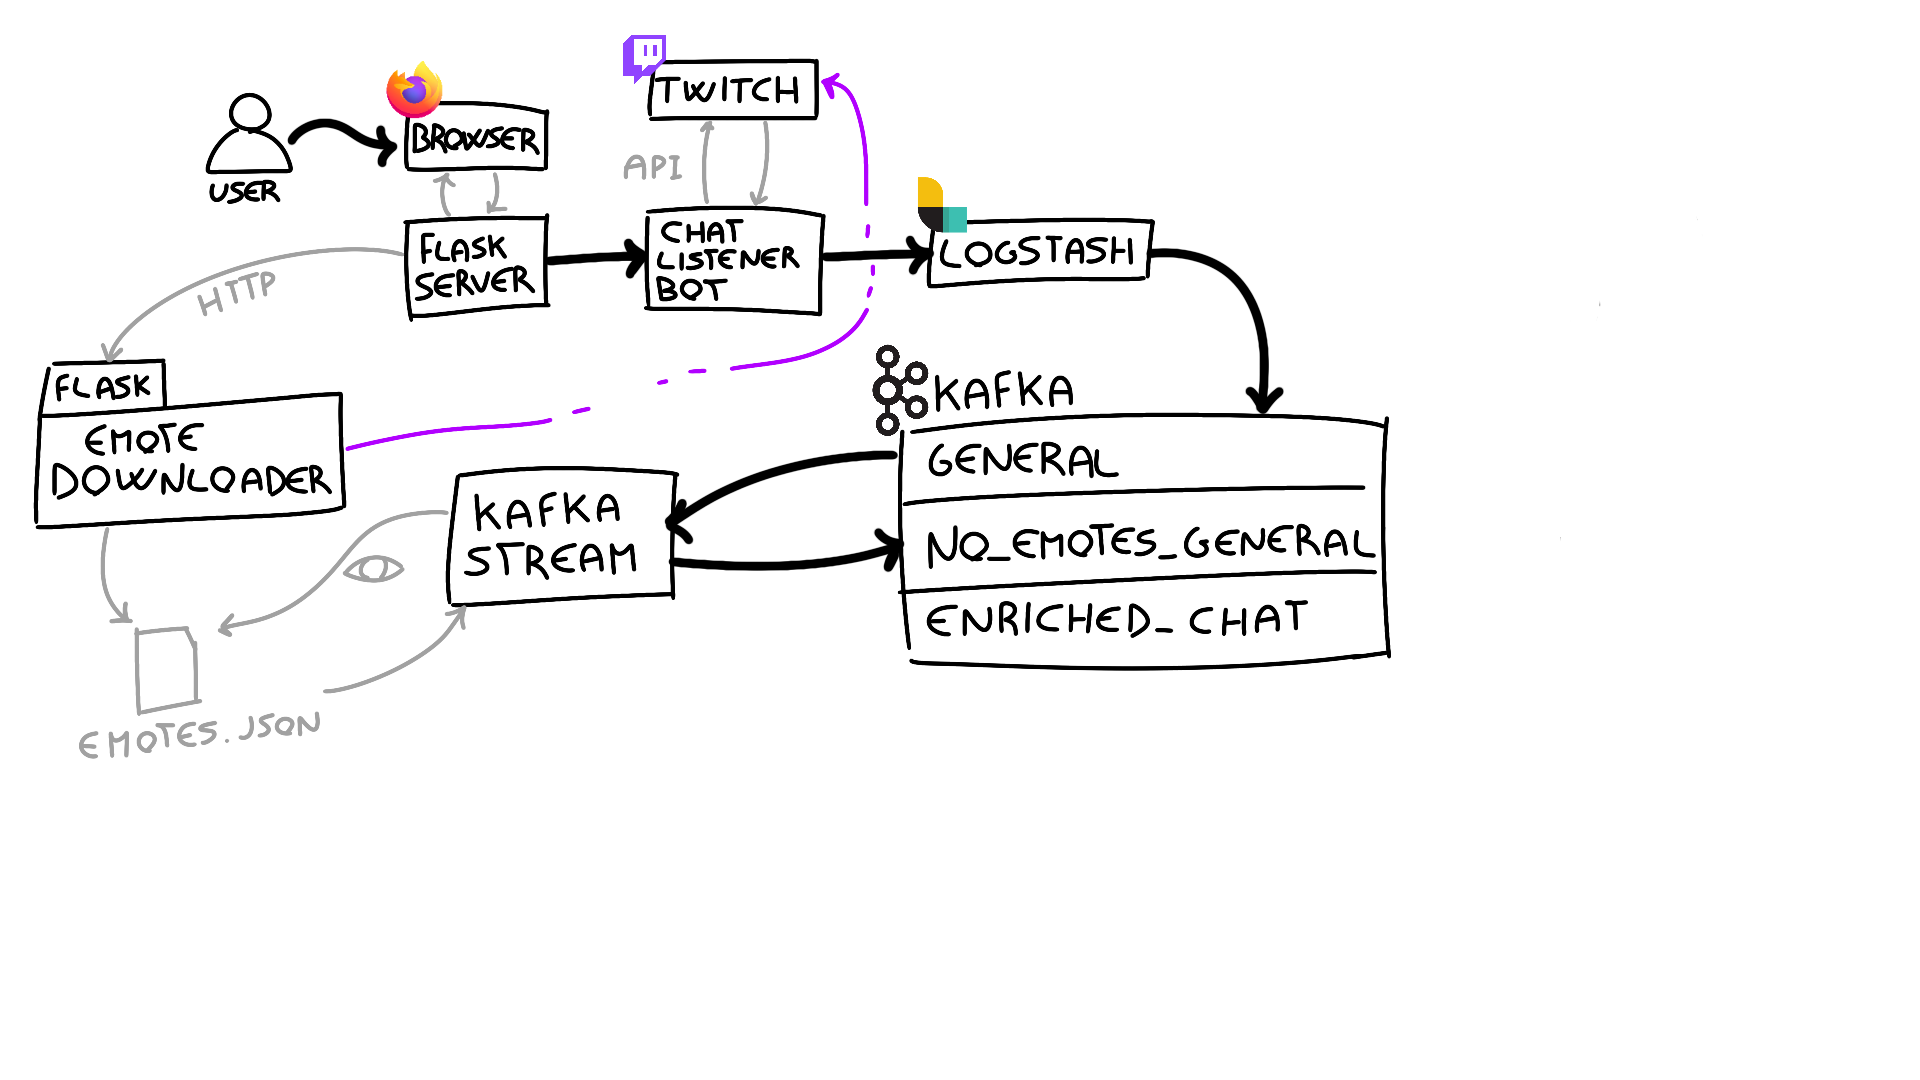 TWITCH
BROWSER
USER
API
FLASK
SERVER
CHAT
LISTENER
BOT
LOGSTASH
HTTP
FLASK
EMOTE
DOWNLOADER
KAFKA
GENERAL
NO_EMOTES_GENERAL
ENRICHED_CHAT
KAFKA
STREAM
EMOTES.JSON